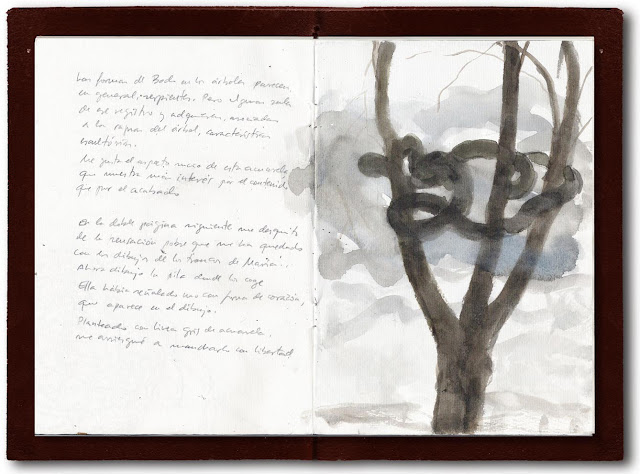 Las formas de en los árboles parecen,
en general, serpientes. Pero algunas salen
de ese registro y adquieren, asociadas
a las ramas del árbol, características
escultóricas.
Me gusta el aspecto de esta acuarela
que muestra más interés por el contenido
que por el acabado
En la doble página siguiente me desquito
de la sensación pobre que me han quedado
con los dibujos de los troncos de
Ahora dibujo la pila donde los coge
Ella había señalado uno con forma de corazón,
que aparece en el dibujo.
Planteado con línea gris de acuarela
me arriesgué a mancharlo con libertad